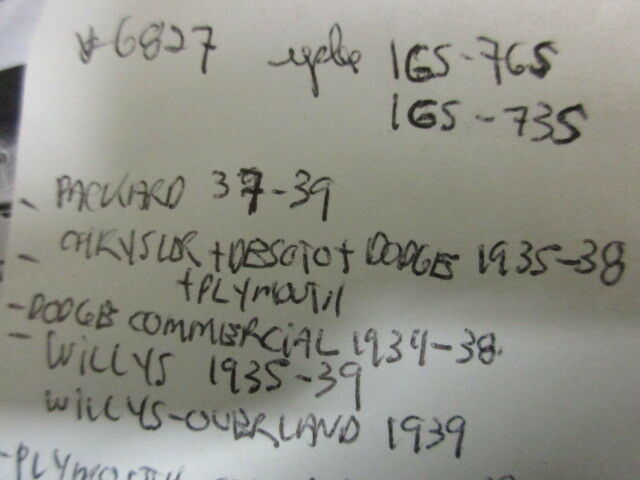 #6827 update IGS-765
IGS-735
- PACKARD 37-39
- CHRYSLER + DESOTO + DODGE 1935-38
+ PLYMOUTH
- DODGE COMMERCIAL 1934-38
- WILLYS 1935-39
WILLYS-OVERLAND 1939
- PLYMOUTH